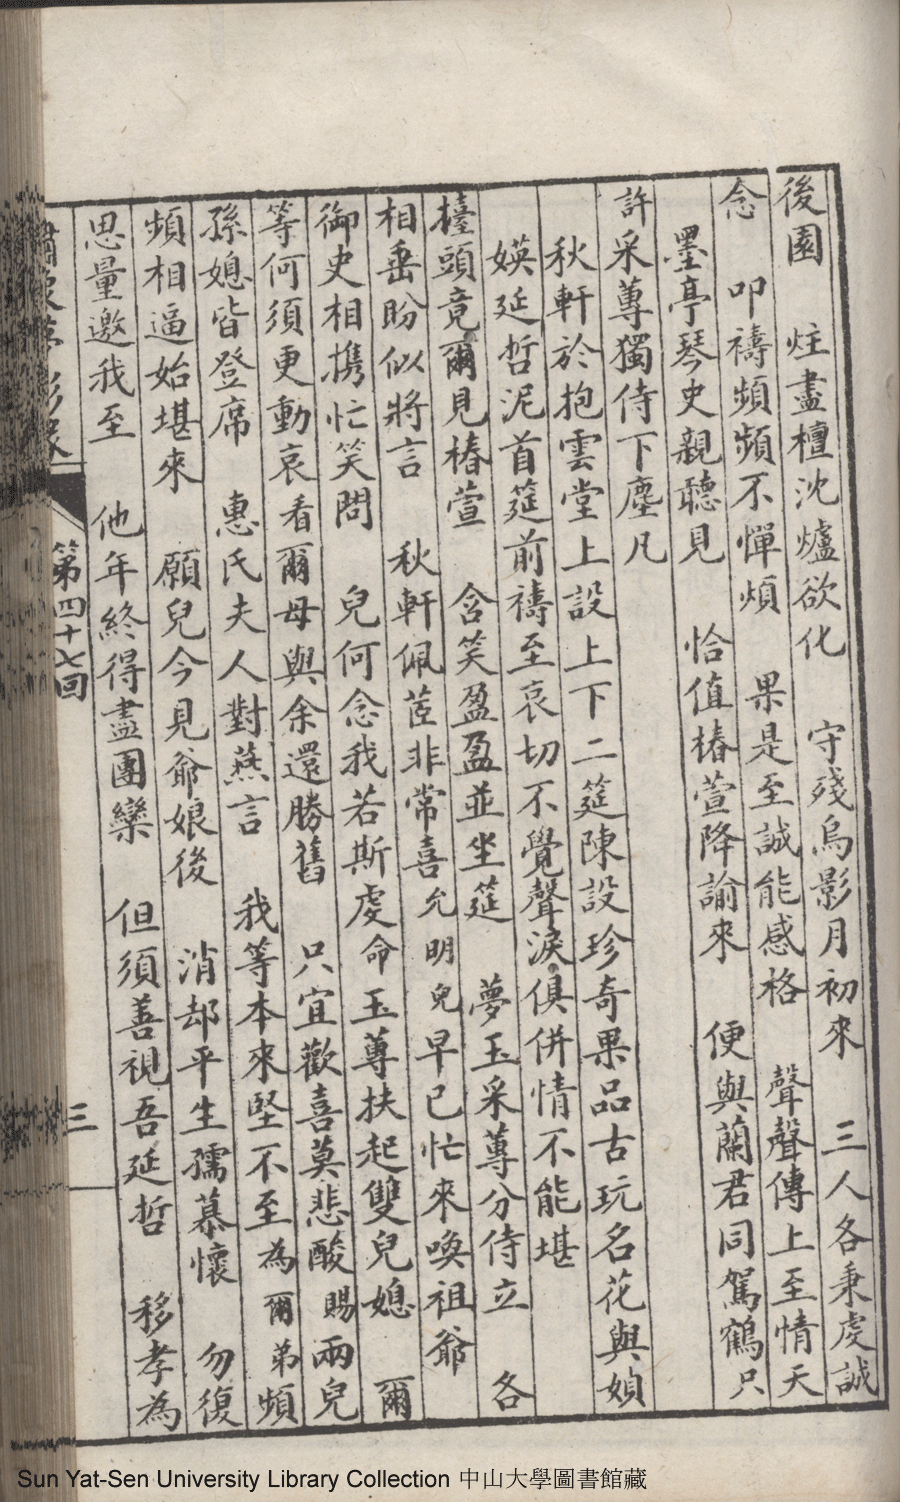 後園　炷盡檀沈爐欲化　守殘烏影月初來　三人各秉虔誠
念　叩禱頻頻不憚煩　果是至誠能感格　聲聲傳上至情天
墨亭琴史親聽見　恰值椿萱降諭來　便與蘭君同駕鶴只
許采蓴獨侍下塵凡
秋軒於抱雲堂上設上下二筵陳設珍奇果品古玩名花與媜
媖延哲泥首筵前禱至哀切不覺聲淚俱併情不能堪
擡頭竟爾見椿萱　含笑盈盈並坐筵　夢玉采蓴分侍立　各
相垂盼似將言　秋軒佩茝非常喜允明皃早已忙來喚祖爺
御史相携忙笑問　兒何念我若斯虔命玉蓴扶起雙兒媳　爾
等何須更動哀看爾母與余還勝舊　只宜歡喜莫悲酸賜兩兒
孫媳皆登席　惠氏夫人對燕言　我等本來堅不至為爾弟頻
頻相逼始堪來　願兒今見爺娘後　消却平生孺慕懷　勿復
思量邀我至　他年終得盡團欒　但須善視吾延哲　移孝為
第四十七回
三
Sun Yat-Sen University Library Collection 中山大學圖書館藏